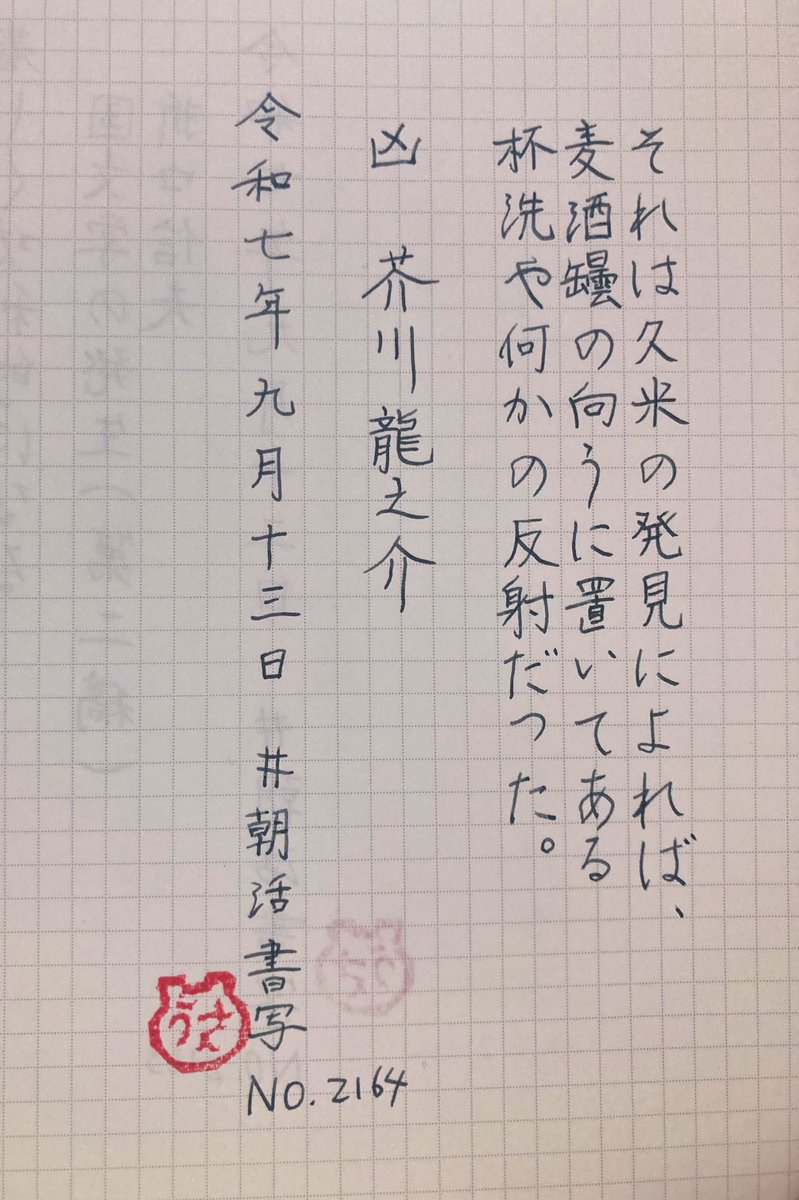 それは久米の発見によれば、
麦酒罎の向うに置いてある
杯洗や何かの反射だつた。
凶　芥川龍之介
令和七年九月十三日　#朝活書写
NO.2164